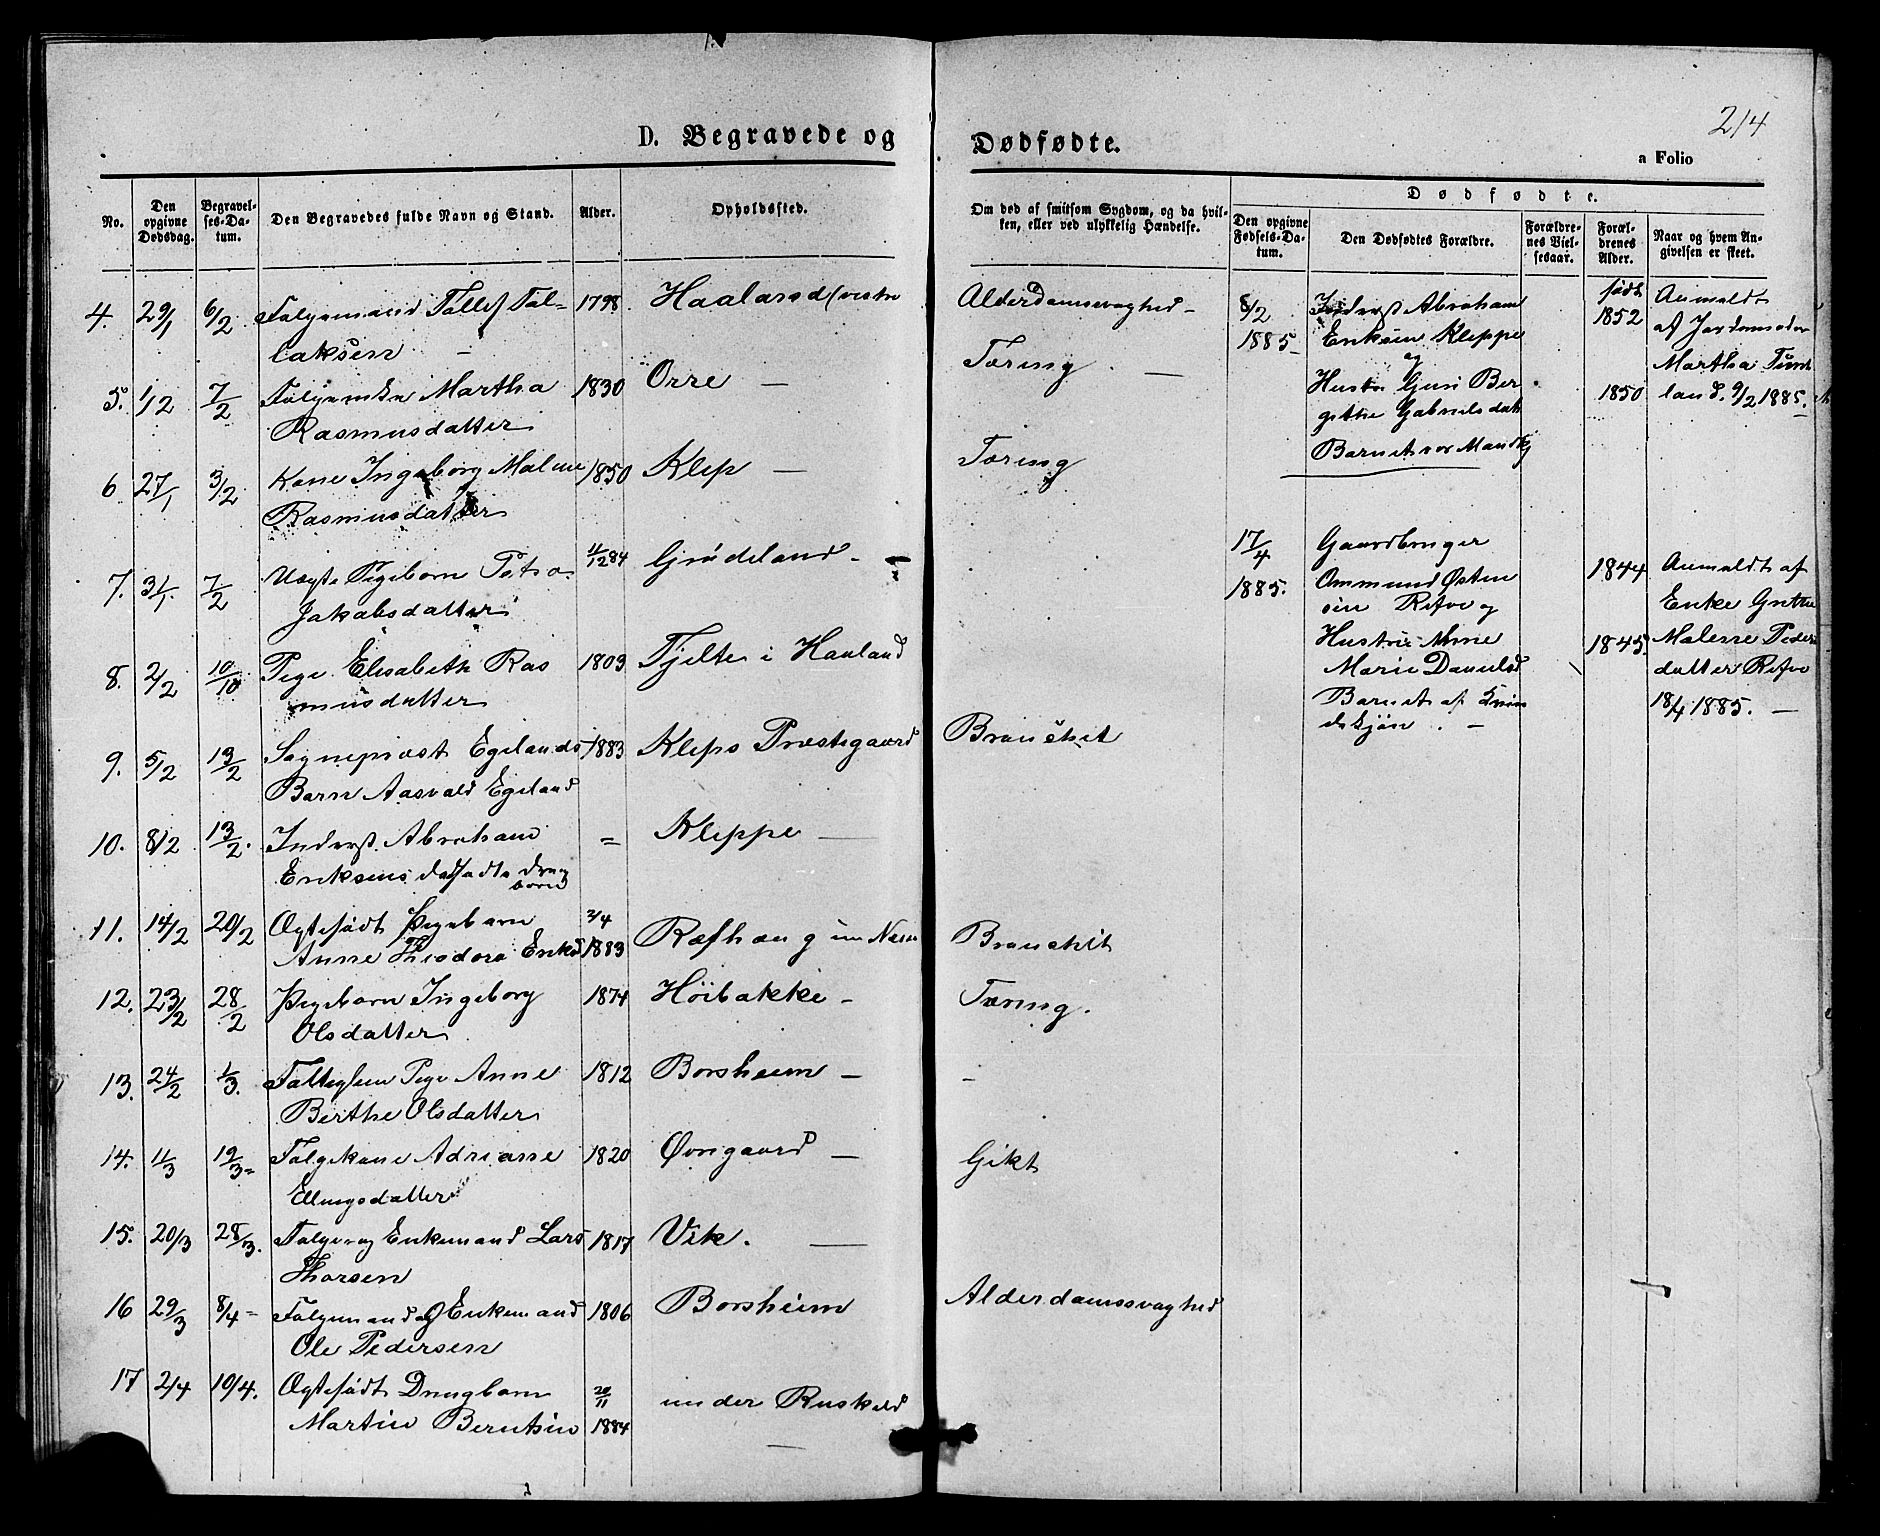 214
D. Begravede og Dødfødte.
a Folio
No.
Den opgivne Dødsdag.
Begravelses-Datum.
Den Begravedes fulde Navn og Stand.
Alder.
Opholdssted.
Om død af smitsom Sygdom, og da hvilken, eller ved ulykkelig Hændelse.
Dødfødte.
Den opgivne Fødsels-Datum.
Den Dødfødtes Forældre.
Forældrenes Vielsesaar.
Forældrenes Alder.
Naar og hvem Angivelsen er skeet.
4. 29/1 6/2 Følgemand Tollef Tol- 1798 Haaland (vestre Alderdomssvaghed -
laksen -
5. 1/2 7/2 Følgemke Martha 1830 Orre - Tæring. -
Rasmusdatter
6 27/1 3/2 Kone Ingeborg Malene 1850 Klep - Tæring
Rasmusdatter
7. 31/1. 7/2 Uægte Pigebarn Petra 11/12 84 Grødeland -
Jakobsdatter
8. 2/2 10/10 Pige Elisabeth Ras 1803 Tjelte i Haaland
musdatter
9. 5/2 13/2 Sogneprest Egelands 1883 Kleps Præstegaard Bronchit
Barn Aasvald Egeland
10. 8/2 13/2. Inderst Abraham = Kleppe -
Eriksens dødfødte Dreng
barn
11. 14/2 20/2 Ægtefødt Pigebarn 3/4 Refhæug un Næs Bronchit
Anne Theodora Eriksd 1883
12. 23/2 28/2 Pigebarn Ingeborg 1874 Høibakke - Tæring.
Olsdatter
13. 24/2 1/3. Fattiglem Pige Anne 1812 Borsheim - -
Berthe Olsdatter
14. 11/3 19/3 = Følgekone Adrianne 1820 Øvregaard - Gikt
Ellingsdatter
15. 20/3 28/3. Følge og Enkemand Lars 1817 Vik. -
Thorsen
16 29/3 8/4 - Følgemand og Enkemand 1806 Borsheim Alderdomssvaghed
Ole Pedersen
17 2/4 10/4. Ægtefødt Drengbarn 20/11 under Ruskeld
Martin Berntsen 1884 -
8/2 Inderst Abraham født Anmeldt
1885 - Eriksen Kleppe 1852 af Jordemoder
og Martha Tunt
Hustru Guri Ber 1850 land. 9/2 1885.
githe Gabrielsdatt
Barnet var Mandkj
17/4 Gaardbruger
1885. Ommund Østen 1844 Anmeldt af
sen Refve og Enke Grethe
Hustru Anne 1845. Malene Peders
Marie Danielsd datter Refve
Barnet af Kvin 18/4 1885. -
dekjøn. -